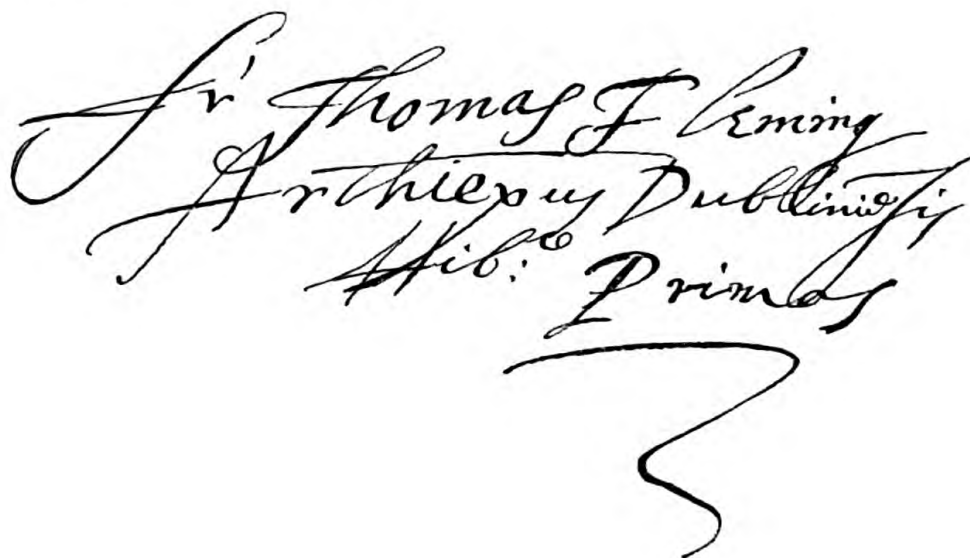 fr Thomas Fleming
Archiepus Dubliniēsis
Hib:e Primas